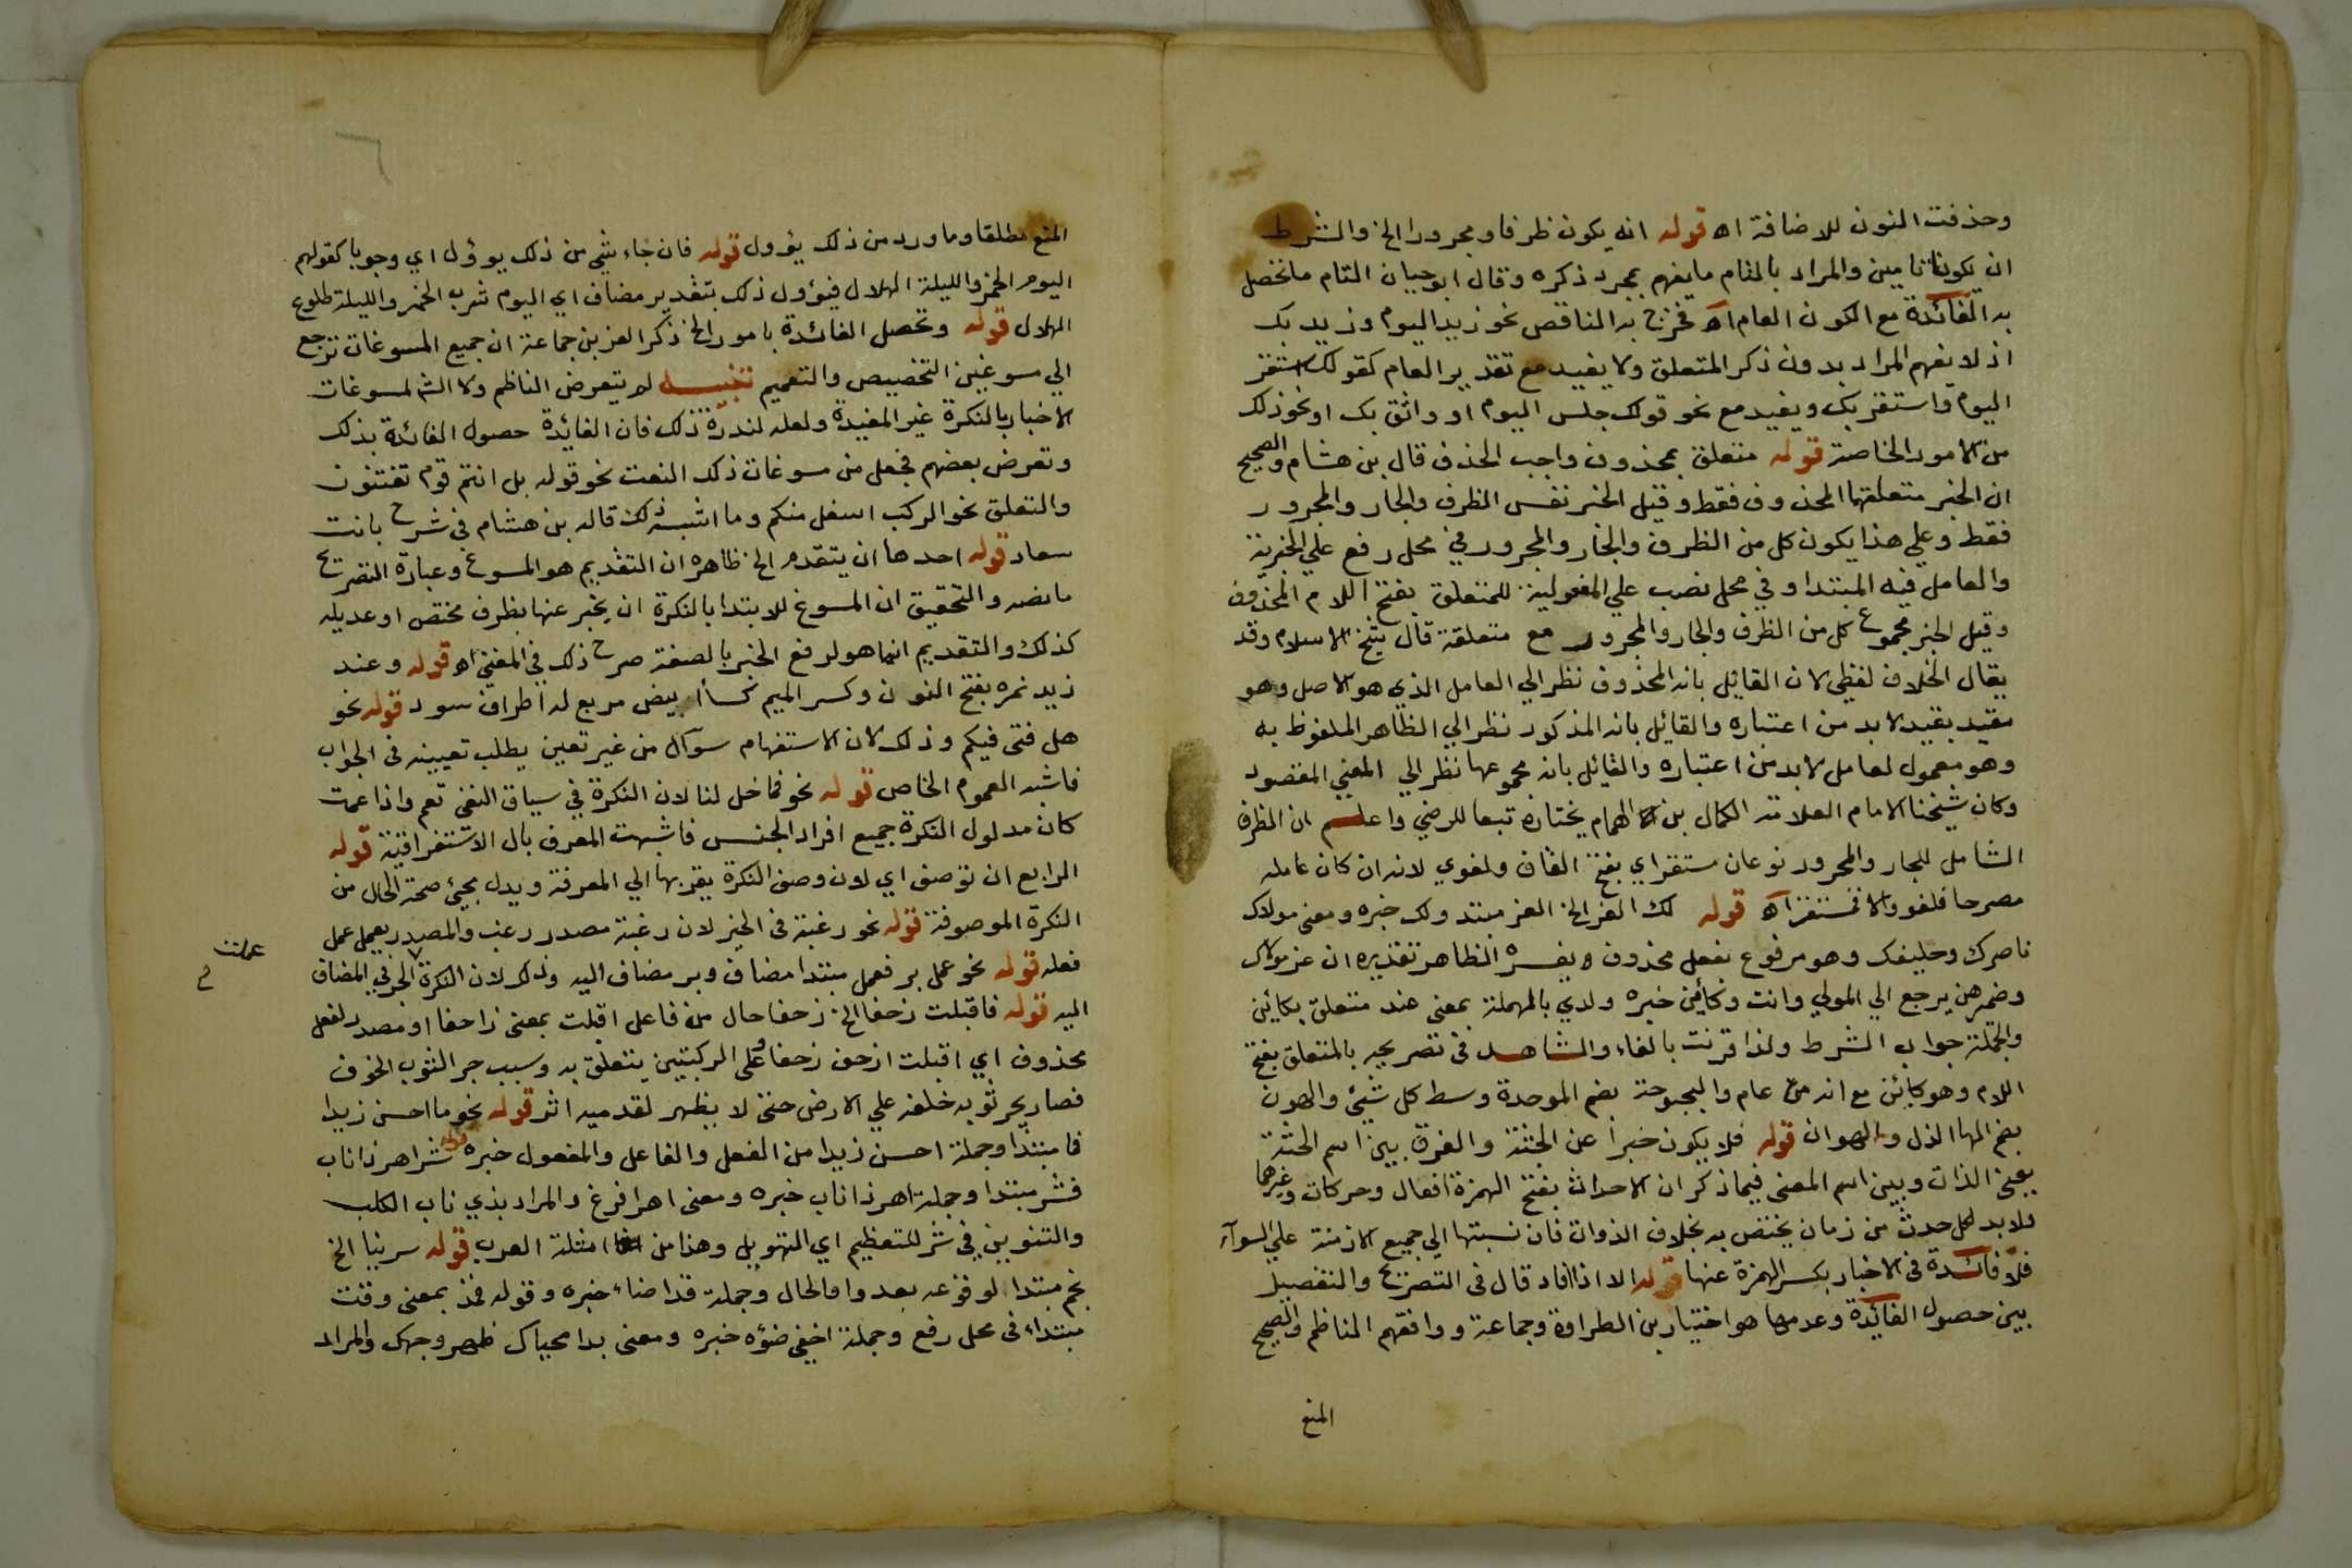 وحذفت النون للاضافة اه قوله انه يكون ظرفا ومجرورا الخ والشرط
ان يكونا تامين والمراد بالتام ما يفهم بمجرد ذكره وقال ابو حيان التام ما تحصل
به الفائدة مع الكون العام اه فخرج به الناقص نحو زيد اليوم وزيد بك
اذ لا يفهم المراد بدون ذكر المتعلق ولا يفيد مع تقدير العام كقولك استقر
اليوم واستقر بك ويفيد مع نحو قولك جلس اليوم او واثق بك او نحو ذلك
من الامور الخاصة قوله متعلق بمحذوف واجب الحذف قال بن هشام والصحيح
ان الخبر متعلقها المحذوف فقط وقيل الخبر نفس الظرف والجار والمجرور
فقط وعلي هذا يكون كل من الظرف والجار والمجرور في محل رفع علي الخبرية
والعامل فيه المبتدا وفي محل نصب علي المفعولية للمتعلق بفتح اللام المحذوف
وقيل الخبر مجموع كل من الظرف والجار والمجرور مع متعلقة قال شيخ الاسلام وقد
يقال الخلاف لفظي لان القائل بانه المحذوف نظر الي العامل الذي هو الاصل وهو
مقيد بقيد لا بد من اعتباره والقائل بانه المذكور نظر الي الظاهر الملفوظ به
وهو معمول لعامل لا بد من اعتباره والقائل بانه مجموعها نظر الي المعني المقصود
وكان شيخنا الامام العلامة الكمال بن الهمام يختاره تبعا للرضي واعلم ان الظرف
الشامل للجار والمجرور نوعان مستقر اي بفتح القاف ولغوي لانه ان كان عامله
مصرحا فلغو والا فمستقر اه قوله لك العز الخ العز مبتد ولك خبره ومعني مولاك
ناصرك وحليفك وهو مرفوع بفعل محذوف يفسره الظاهر تقديره ان عز مولاك
وضمر هن يرجع الي المولي وانت وكائن خبره ولدي بالمهملة بمعني عند متعلق بكائن
والجملة جواب الشرط ولذا قرنت بالفاء والشاهد في تصريحه بالمتعلق بفتح
اللام وهو كائن مع انه عام والبحبوحة بضم الموحدة وسط كل شيئ والهون
بضم الها الذل والهوان قوله فلا يكون خبرا عن الجثة والفرق بين اسم الجثة
بمعني الذات وبين اسم المعني فيما ذكر ان الاحداث بفتح الهمزة افعال وحركات وغيرها
فلا بد لكل حدث من زمان يختص به بخلاف الذوات فان نسبتها الي جميع الازمنة علي السوآء
فلا فائدة في الاخبار بكسر الهمزة عنها قوله الا اذا افاد قال في التصريح والتفصيل
بين حصول الفائدة وعدمها هو اختيار بن الطراوة وجماعة ووافقهم الناظم والصحيح
المنع
المنع مطلقا وما ورد من ذلك يؤول قوله فان جاء شيئ من ذلك يوؤل اي وجوبا كقولهم
اليوم الخمر والليلة الهلال فيؤول ذلك بتقدير مضاف اي اليوم شرب الخمر والليلة طلوع
الهلال قوله وتحصل الفائدة بامور الخ ذكر العز بن جماعة ان جميع المسوغات ترجع
الي مسوغين التخصيص والتعميم تنبيه لم يتعرض الناظم ولا الش لمسوغات
الاخبار بالنكرة غير المفيدة ولعله لندرة ذلك فان الفائدة حصول الفائدة بذلك
وتعرض بعضهم فجعل من مسوغات ذلك النعت نحو قوله بل انتم قوم تفتنون
والتعلق نحو الركب اسفل منكم وما اشبه ذلك قاله بن هشام في شرح بانت
سعاد قوله احدها ان يتقدم الخ ظاهره ان التقديم هو المسوغ وعبارة التصريح
ما نصه والتحقيق ان المسوغ للابتدا بالنكرة ان يخبر عنها بظرف مختص او عديله
كذلك والتقديم انما هو لرفع الخبر بالصفة صرح ذلك في المغني اه قوله وعند
زيد نمره بفتح النون وكسر الميم كسأ ابيض مربع له اطراف سود قوله نحو
هل فتى فيكم وذلك لان الاستفهام سوآل من غير تعين يطلب تعيينه في الجواب
فاشبه العموم الخاص قوله نحو فما خل لنا لان النكرة في سياق النفي تعم واذا عمت
كان مدلول النكرة جميع افراد الجنس فاشبهت المعرف بال الاستغراقية قوله
الرابع ان توصف اي لان وصف النكرة يقربها الي المعرفة ويدل مجيئ صحة الحال من
النكرة الموصوفة قوله نحو رغبة في الخير لان رغبة مصدر رغب والمصدر يعمل عمل
فعله قوله نحو عمل بر فعمل مبتدا مضاف وبر مضاف اليه وذلك لان النكرة الجر في المضاف
عملت
اليه قوله فاقبلت زحفا الخ زحفا حال من فاعل اقبلت بمعني زاحفا او مصدر لفعل
محذوف اي اقبلت ازحف زحفا وعلى الركبتين يتعلق به وسبب جر الثوب الخوف
فصار يجر ثوبه خلفه علي الارض حتي لا يظهر لقدميه اثر قوله نحو ما احسن زيدا
فما مبتدا وجملة احسن زيدا من الفعل والفاعل والمفعول خبره قوله شر اهر ذا ناب
فشر مبتدا وجملة اهر ذا ناب خبره ومعني اهر افزع والمراد بذي ناب الكلب
والتنوين في شر للتعظيم اي التهويل وهذا من امثلة العرب قوله سرينا الخ
نجم مبتدا لوقوعه بعد واو الحال وجملة قد اضاء خبره وقوله فمذ بمعني وقت
مبتداء في محل رفع وجملة اخفي ضوؤه خبره ومعني بدا محياك ظهر وجهك والمراد